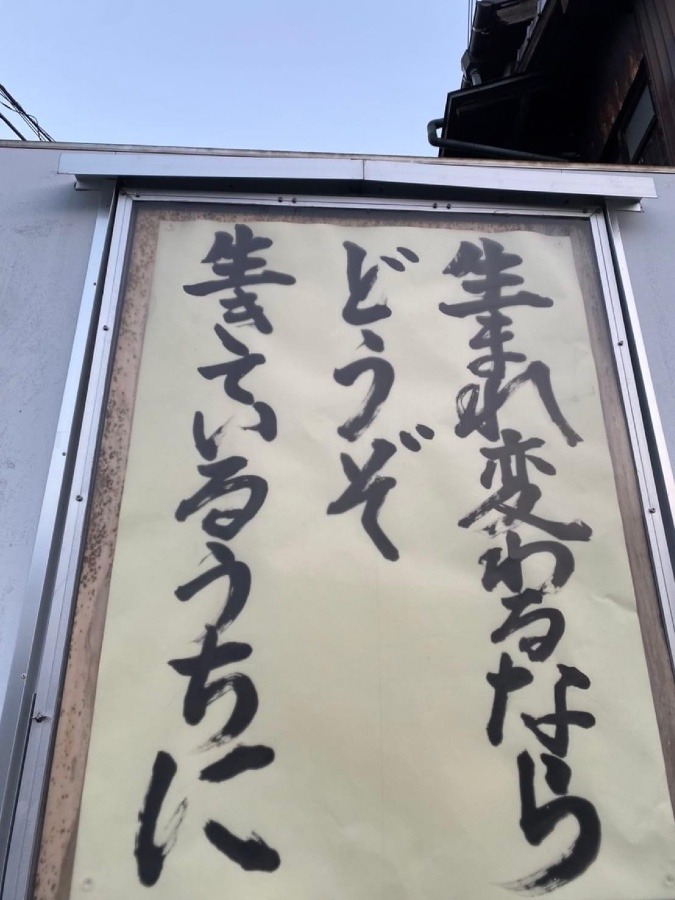 生まれ変わるなら
どうぞ
生きているうちに